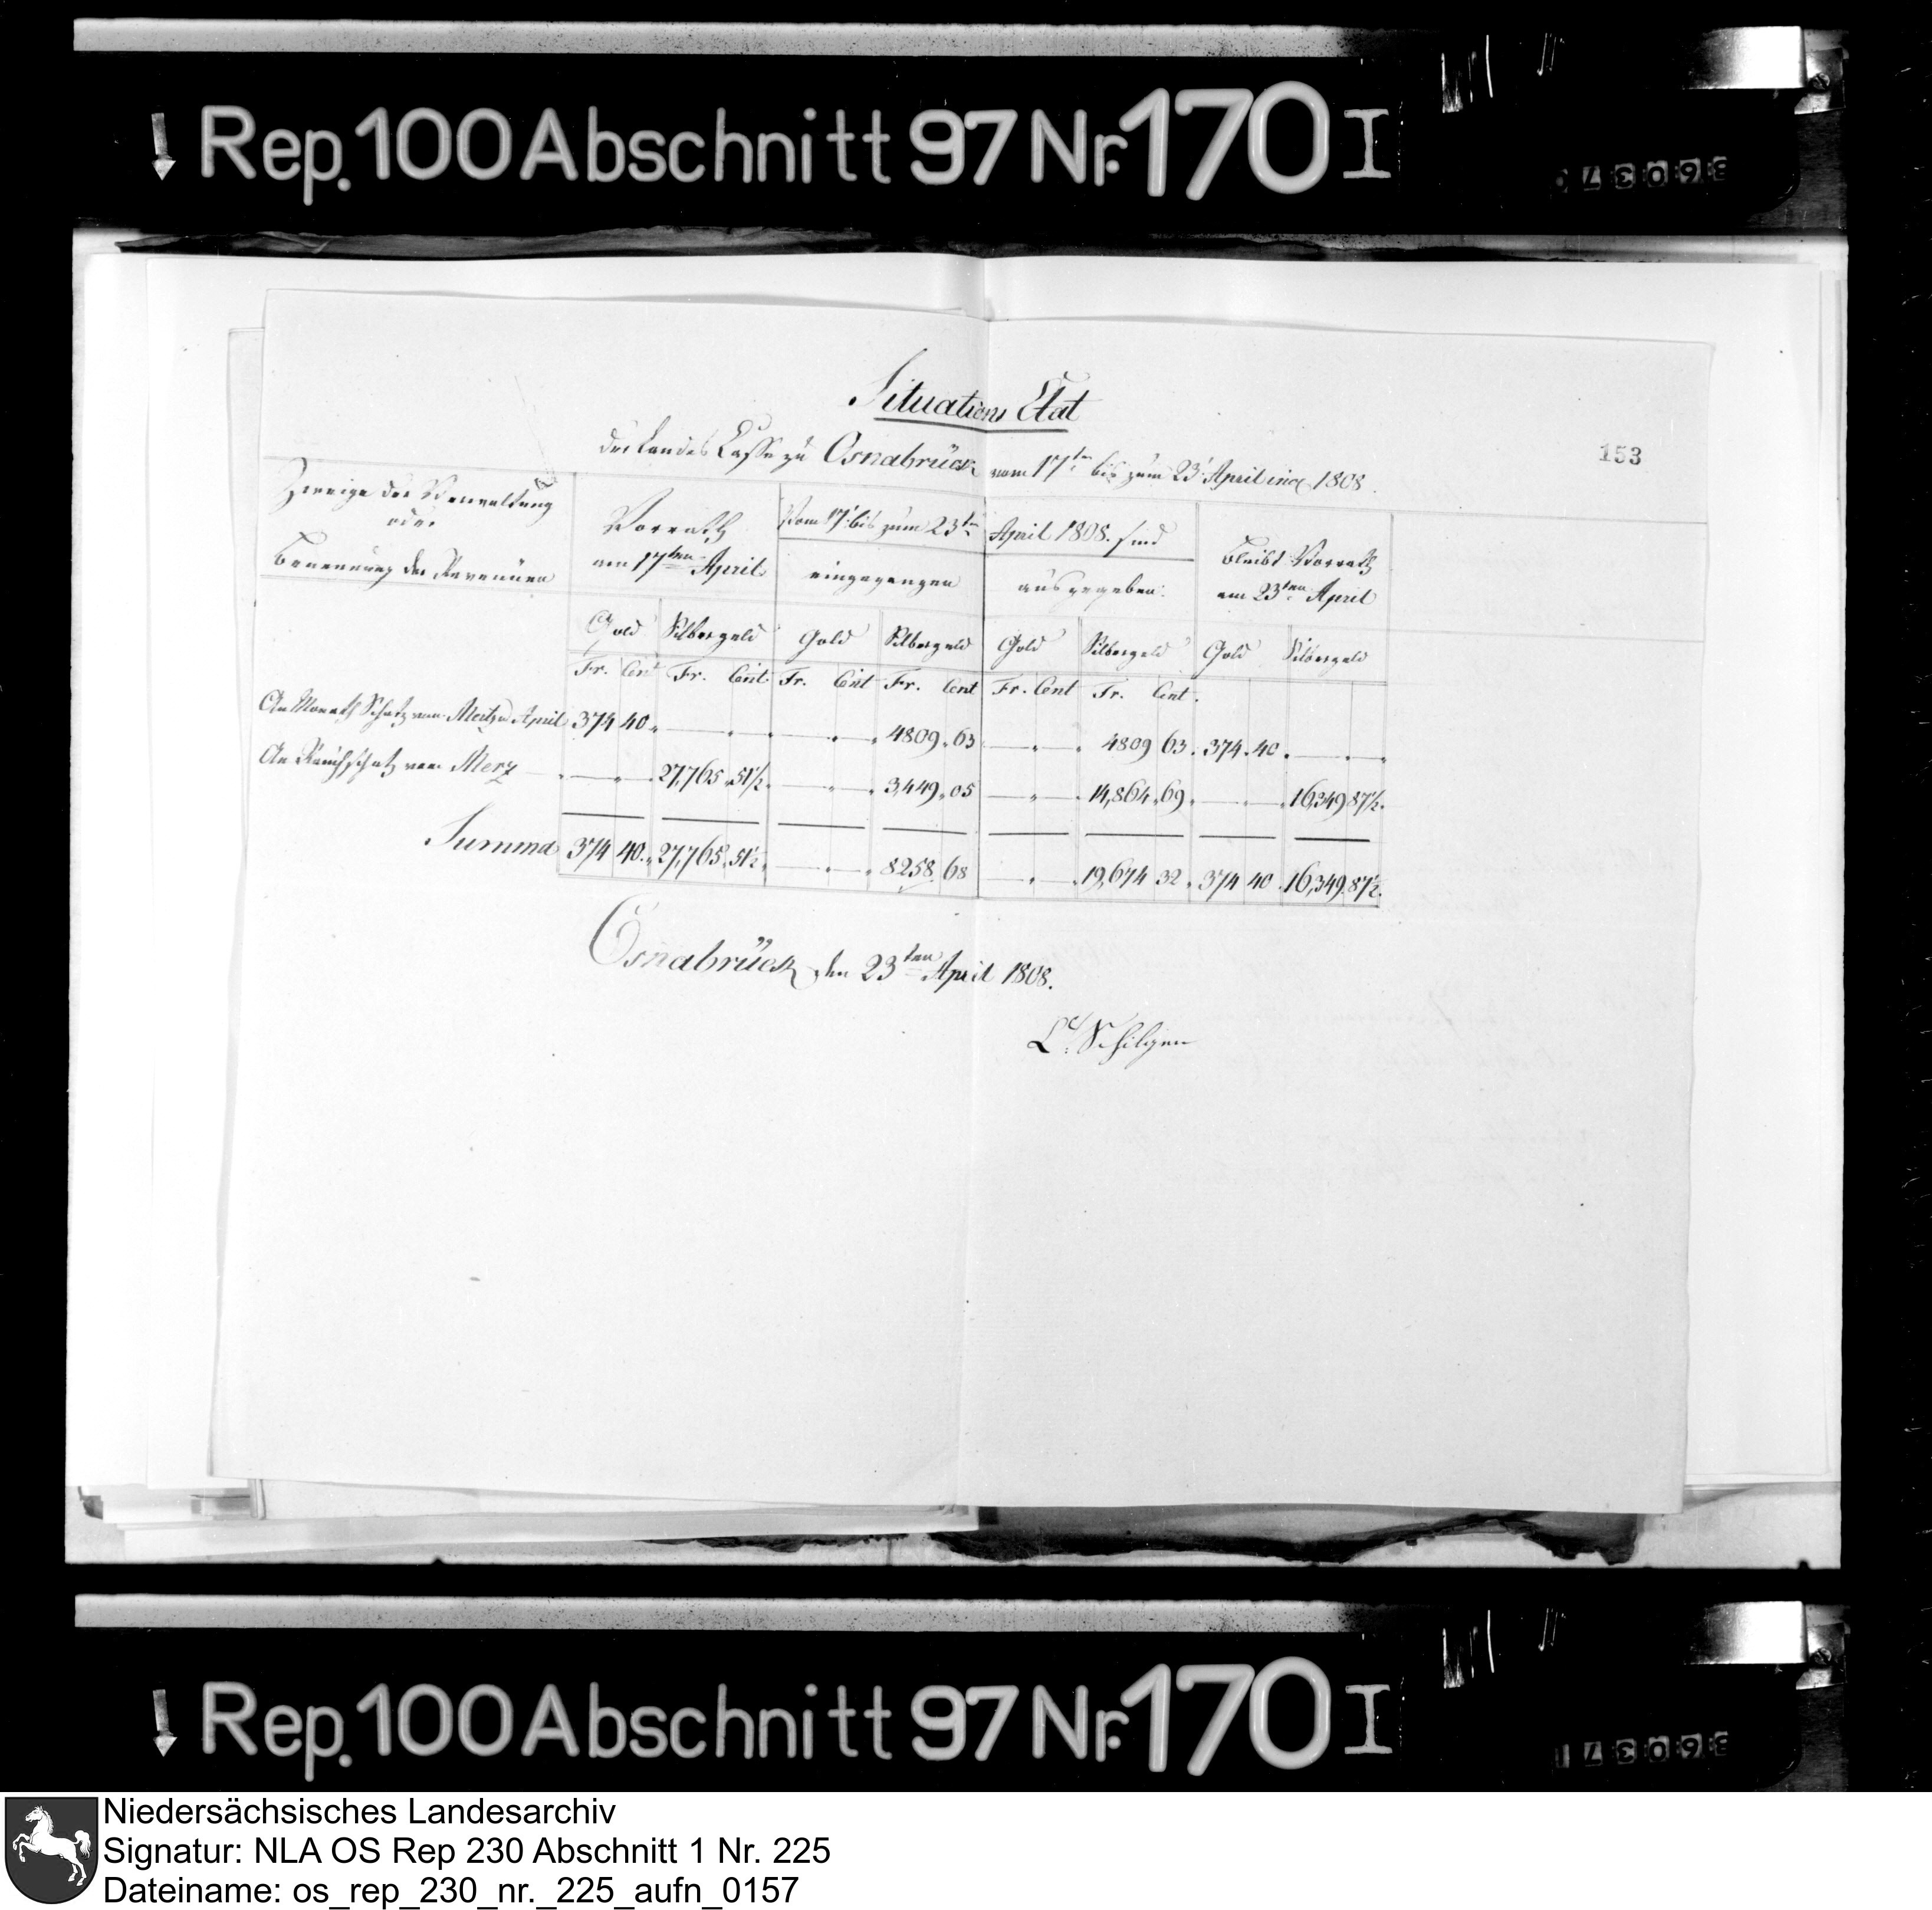 Rep. 100 Abschnitt 97 Nr. 170 I
Situations Etat
der Landes Casse zu Osnabrück vom 17ten bis zum 23t April incl. 1808.
153
Zweige der Verwaltung
oder
Benennung der Revenüen
Vorrath
am 17ten April
Vom 17t bis zum 23ten April 1808. sind
eingegangen
ausgegeben:
bleibt Vorrath
am 23ten April
Gold Silbergeld Gold Silbergeld Gold Silbergeld Gold Silbergeld
Fr. Cent Fr. Cent Fr. Cent Fr. Cent Fr. Cent Fr. Cent.
An Monath Schatz von Mertz u April 374 40 4809. 63 4809 63. 374. 40.
An Rauchschatz von Merz 27,765. 51½ 3,449. 05 14,864. 69. 16,349 87½.
Summa 374 40. 27,765. 51½ 8258 68 19,674 32. 374 40. 16,349. 87½.
Osnabrück den 23ten April 1808.
Schilgen
Rep. 100 Abschnitt 97 Nr. 170 I
Niedersächsisches Landesarchiv
Signatur: NLA OS Rep 230 Abschnitt 1 Nr. 225
Dateiname: os_rep_230_nr._225_aufn_0157